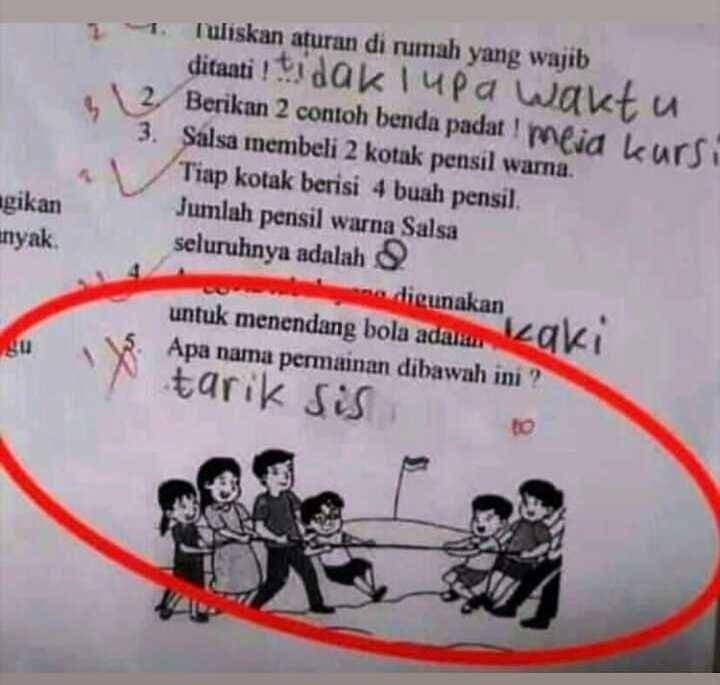 1. Tuliskan aturan di rumah yang wajib
ditaati ! tidak lupa waktu
2. Berikan 2 contoh benda padat ! meja kursi
3. Salsa membeli 2 kotak pensil warna.
Tiap kotak berisi 4 buah pensil.
Jumlah pensil warna Salsa
seluruhnya adalah 8
4. digunakan
untuk menendang bola adalah kaki
5. Apa nama permainan dibawah ini ?
tarik sis
gikan
nyak.
gu